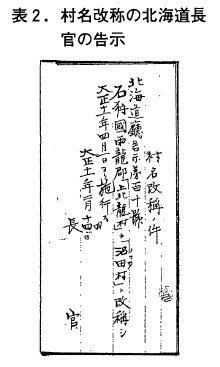 表2. 村名改称の北海道長
官の告示
村名改称ノ件
北海道廳告示第百十號
石狩國雨龍郡「上北龍村」ヲ「沼田村」ト改称シ
大正十一年四月一日ヨリ施行ス
大正十一年二月十四日
長官